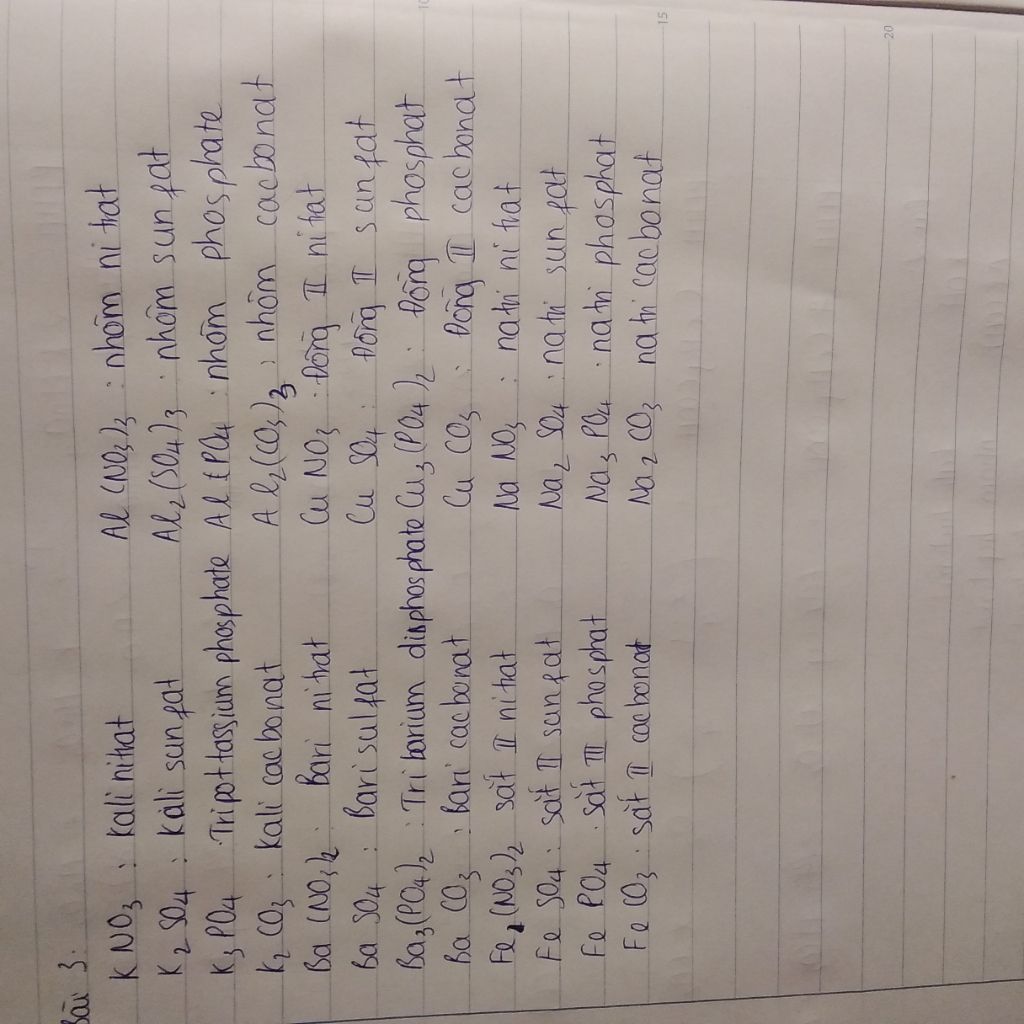 Bài 3:
K NO3 : kali nitrat Al (NO3)3 : nhôm ni trat
K2 SO4 : kali sunfat Al2(SO4)3 : nhôm sun fat
K3 PO4 Tripottassium phosphate Al PO4 : nhôm phosphate
K2 CO3 : kali cacbonat Al2(CO3)3 : nhôm cacbonat
Ba (NO3)2 : Bari nitrat Cu NO3 : Đồng II ni trat
Ba SO4 : Bari sulfat Cu SO4 : Đồng II sunfat
Ba3(PO4)2 : Tri barium disphosphate Cu3(PO4)2 : Đồng phosphat
Ba CO3 : Bari cacbonat Cu CO3 : Đồng II cacbonat
Fe2(NO3)2 sắt II nitrat Na NO3 : natri ni trat
Fe SO4 : sắt II sunfat Na2 SO4 : natri sun fat
Fe PO4 : sắt III phosphat Na3 PO4 : natri phosphat
Fe CO3 : sắt II cacbonat Na2 CO3 natri cacbonat
10
15
20